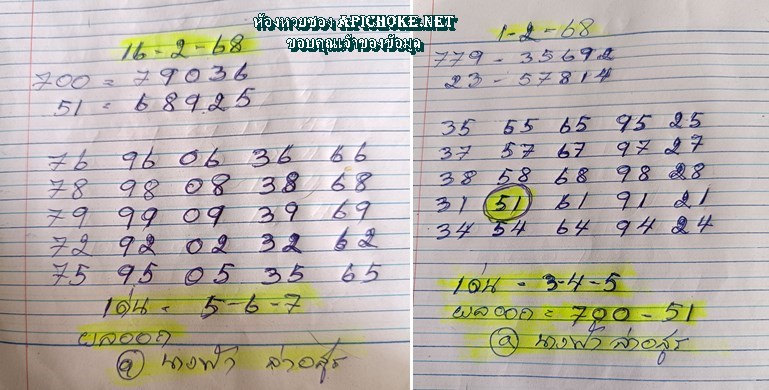 ห้องหวยซอง APICHOKE.NET
ขอบคุณเจ้าของข้อมูล
16-2-68
700 = 79036
51 = 68925
76 96 06 36 66
78 98 08 38 68
79 99 09 39 69
72 92 02 32 62
75 95 05 35 65
เด่น = 5-6-7
ผลออก
@ นางฟ้า ล่าอสูร
1-2-68
779 - 35692
23 - 57814
35 55 65 95 25
37 57 67 97 27
38 58 68 98 28
31 51 61 91 21
34 54 64 94 24
เด่น - 3-4-5
ผลออก = 700 - 51
@ นางฟ้า ล่าอสูร